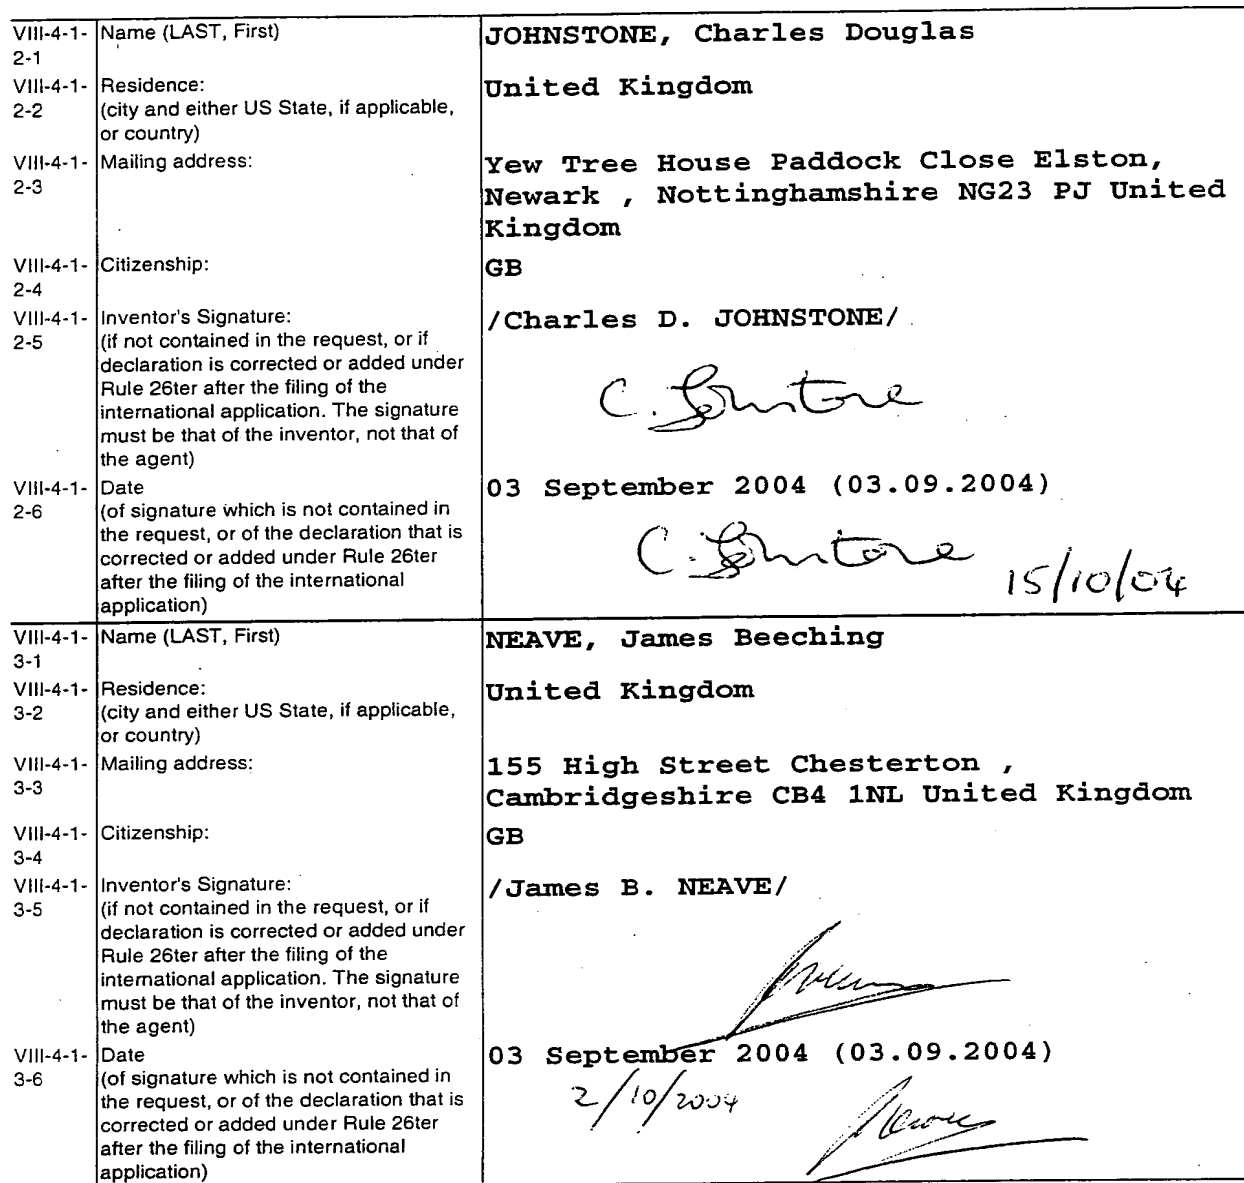 VIII-4-1- Name (LAST, First) JOHNSTONE, Charles Douglas
2-1
VIII-4-1- Residence: United Kingdom
2-2 (city and either US State, if applicable,
or country)
VIII-4-1- Mailing address: Yew Tree House Paddock Close Elston,
2-3 Newark , Nottinghamshire NG23 PJ United
Kingdom
VIII-4-1- Citizenship: GB
2-4
VIII-4-1- Inventor's Signature: /Charles D. JOHNSTONE/
2-5 (if not contained in the request, or if
declaration is corrected or added under
Rule 26ter after the filing of the
international application. The signature
must be that of the inventor, not that of
the agent)
C. Johnstone
VIII-4-1- Date 03 September 2004 (03.09.2004)
2-6 (of signature which is not contained in
the request, or of the declaration that is
corrected or added under Rule 26ter
after the filing of the international
application)
C. Johnstone 15/10/04
VIII-4-1- Name (LAST, First) NEAVE, James Beeching
3-1
VIII-4-1- Residence: United Kingdom
3-2 (city and either US State, if applicable,
or country)
VIII-4-1- Mailing address: 155 High Street Chesterton ,
3-3 Cambridgeshire CB4 1NL United Kingdom
VIII-4-1- Citizenship: GB
3-4
VIII-4-1- Inventor's Signature: /James B. NEAVE/
3-5 (if not contained in the request, or if
declaration is corrected or added under
Rule 26ter after the filing of the
international application. The signature
must be that of the inventor, not that of
the agent)
VIII-4-1- Date 03 September 2004 (03.09.2004)
3-6 (of signature which is not contained in
the request, or of the declaration that is
corrected or added under Rule 26ter
after the filing of the international
application)
2/10/2004